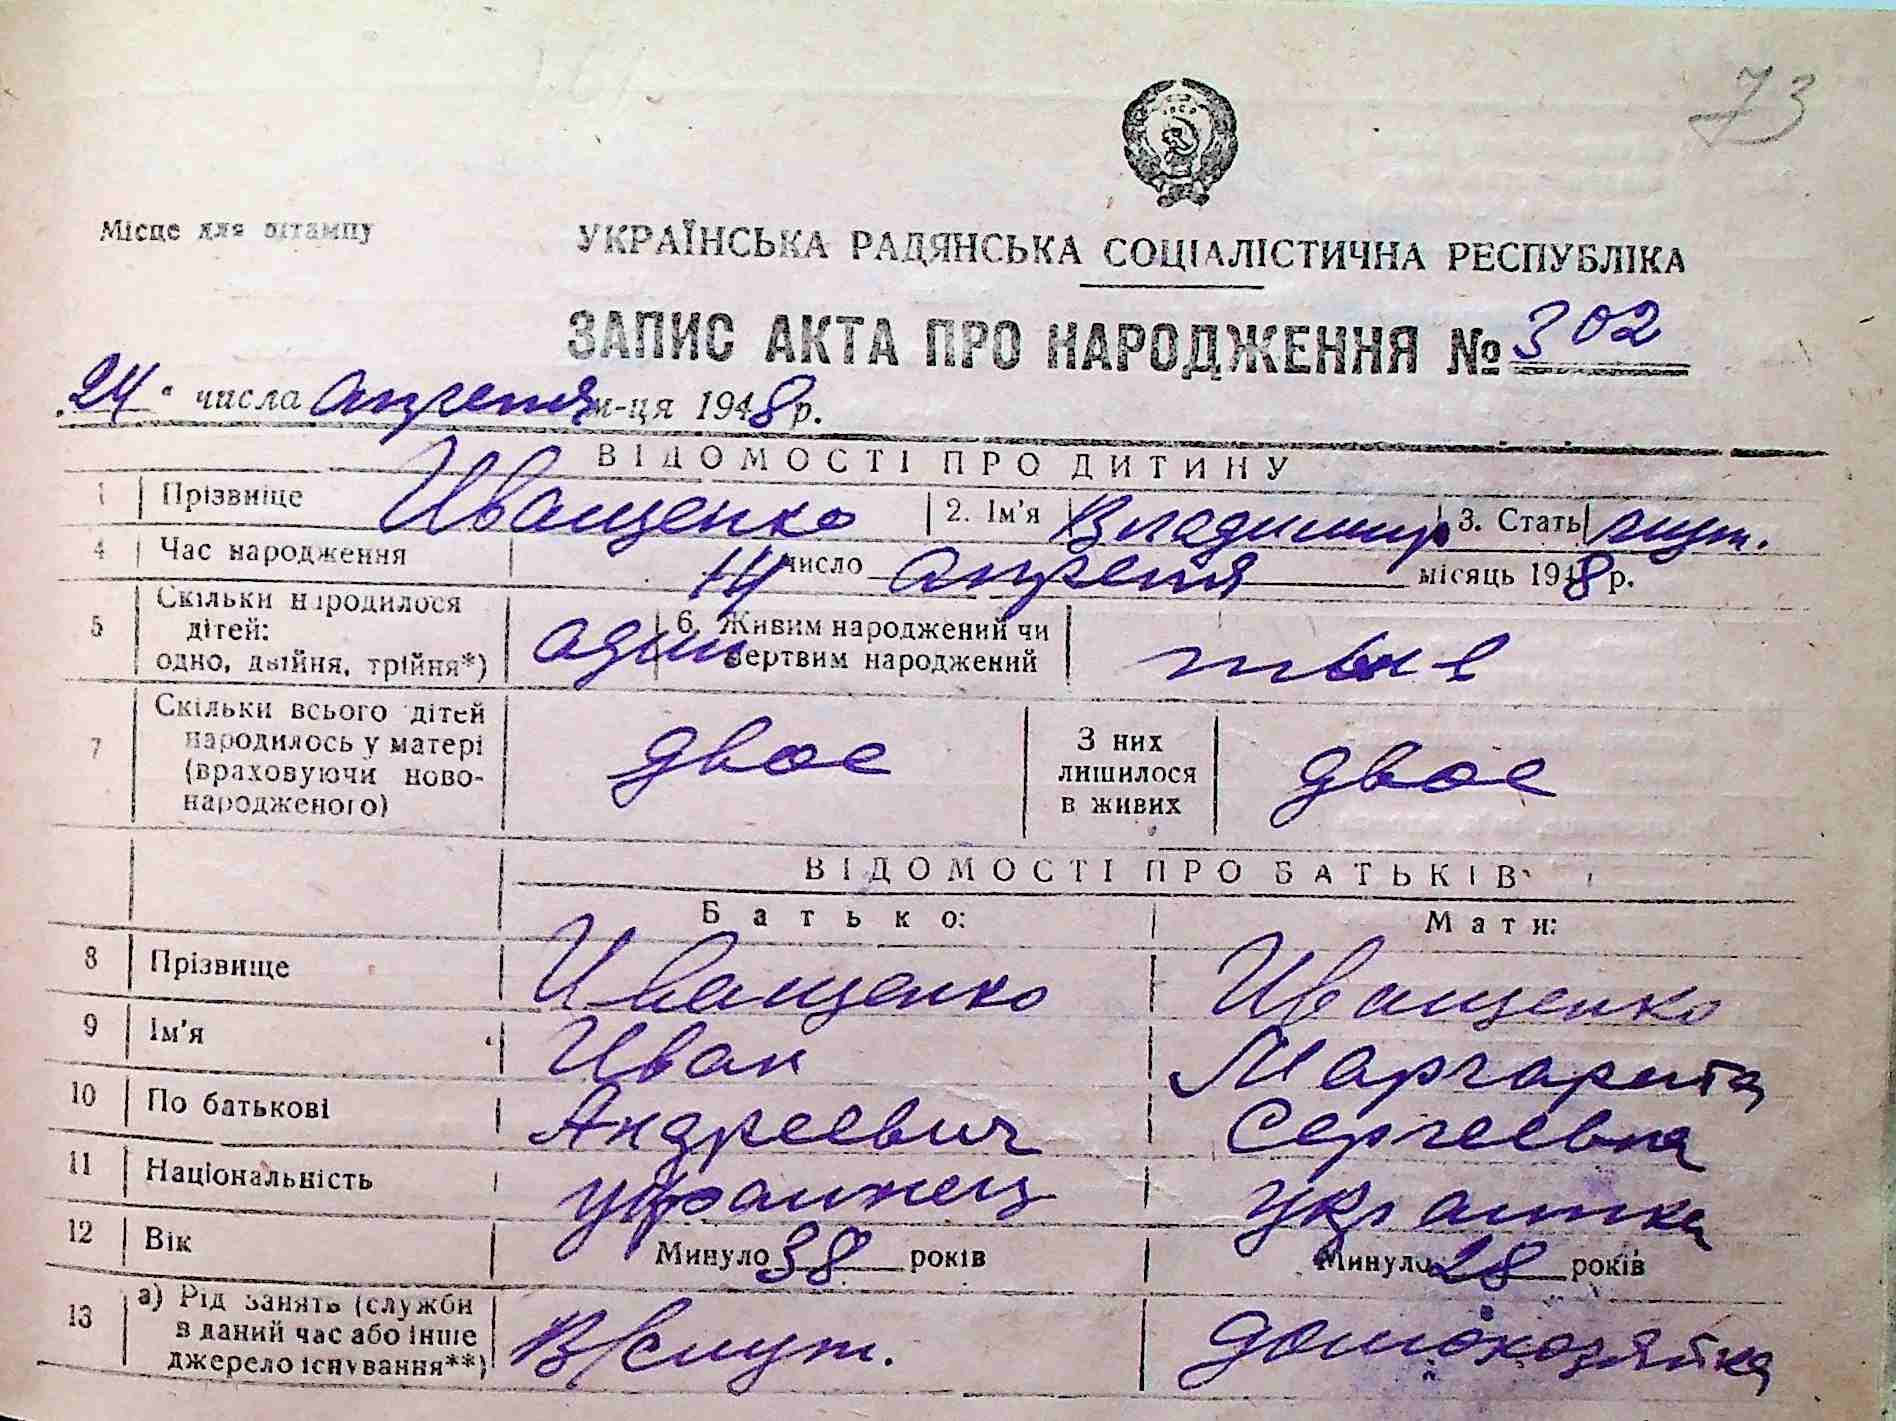 73
Місце для штампу
УКРАЇНСЬКА РАДЯНСЬКА СОЦІАЛІСТИЧНА РЕСПУБЛІКА
ЗАПИС АКТА ПРО НАРОДЖЕННЯ № 302
24 числа апреля м-ця 1948 р.
ВІДОМОСТІ ПРО ДИТИНУ
1 Прізвище Иващенко 2. Ім'я Владимир 3. Стать муж.
4 Час народження 14 число апреля місяць 1948 р.
5 Скільки народилося
дітей:
одно, двійня, трійня*) один 6. Живим народжений чи
мертвим народжений
7 Скільки всього дітей
народилось у матері
(враховуючи ново-
народженого) двое З них
лишилося
в живих двое
ВІДОМОСТІ ПРО БАТЬКІВ
Батько: Мати:
8 Прізвище Иващенко Иващенко
9 Ім'я Иван Маргарита
10 По батькові Андреевич Сергеевна
11 Національність украинец украинка
12 Вік Минуло 38 років Минуло 28 років
13 а) Рід занять (служби
в даний час або інше
джерело існування**) В/служ. домохозяйка